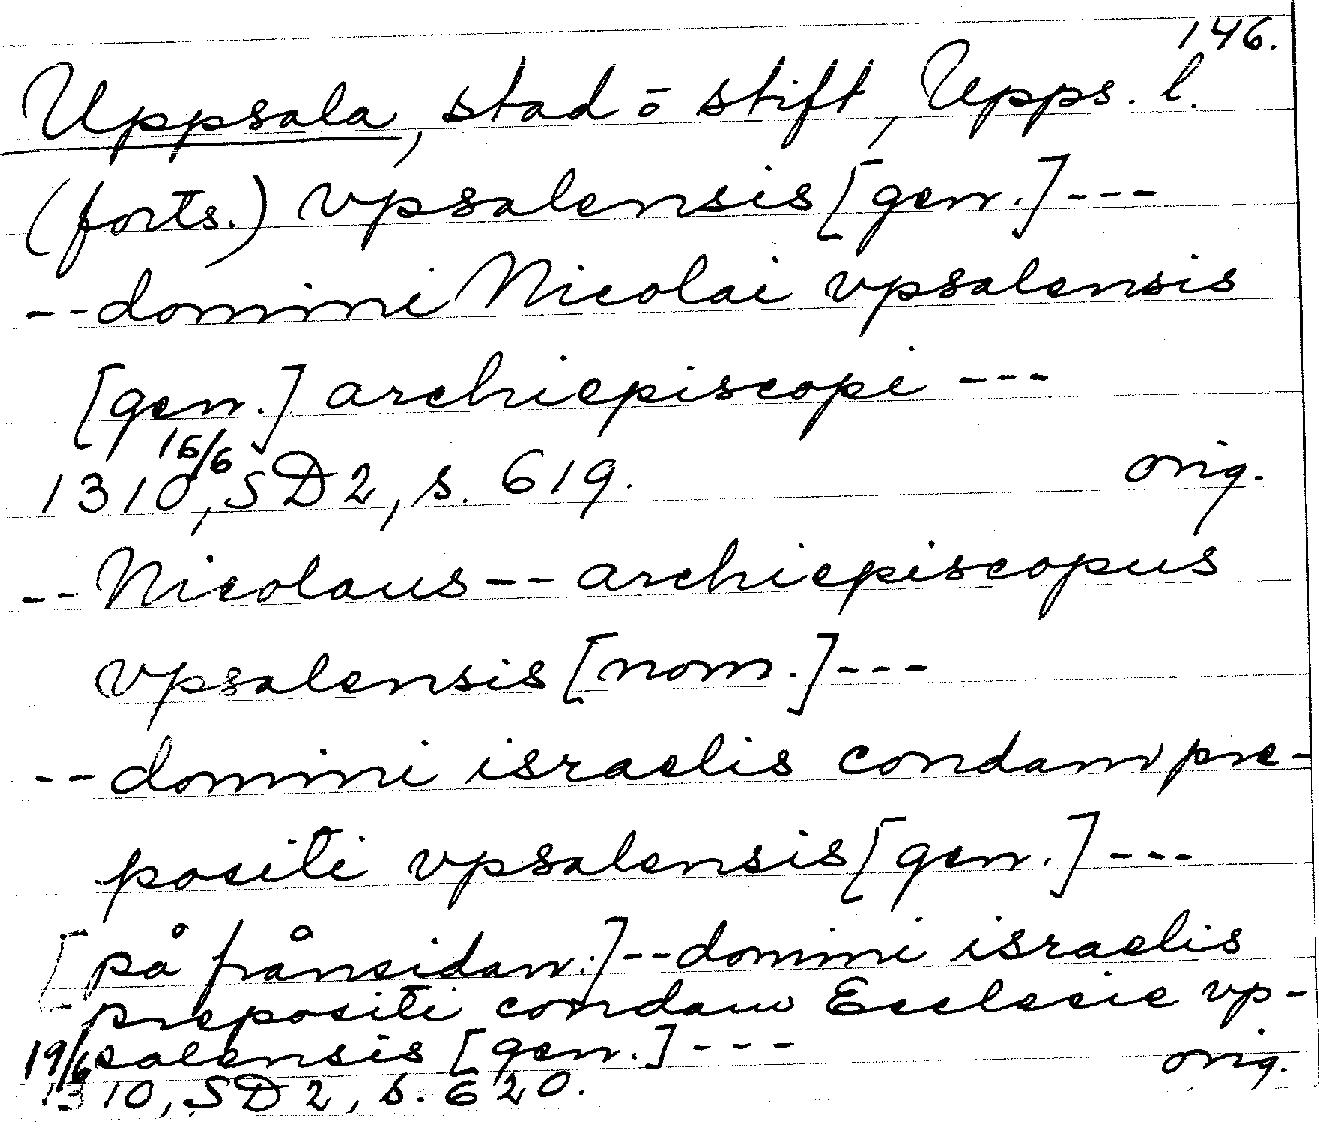 146.
Uppsala, stad o stift, Upps. l.
(forts.) vpsalensis [gen.] ---
-- domini Nicolai vpsalensis
[gen.] archiepiscopi ---
15/6
1310, SD 2, s. 619. orig.
-- Nicolaus -- archiepiscopus
vpsalensis [nom.] ---
-- domini israelis condam pre-
positi vpsalensis [gen.] ---
[på frånsidan:] -- domini israelis
prepositi condam Ecclesie vp-
salensis [gen.] ---
19/6
1310, SD 2, s. 620. orig.